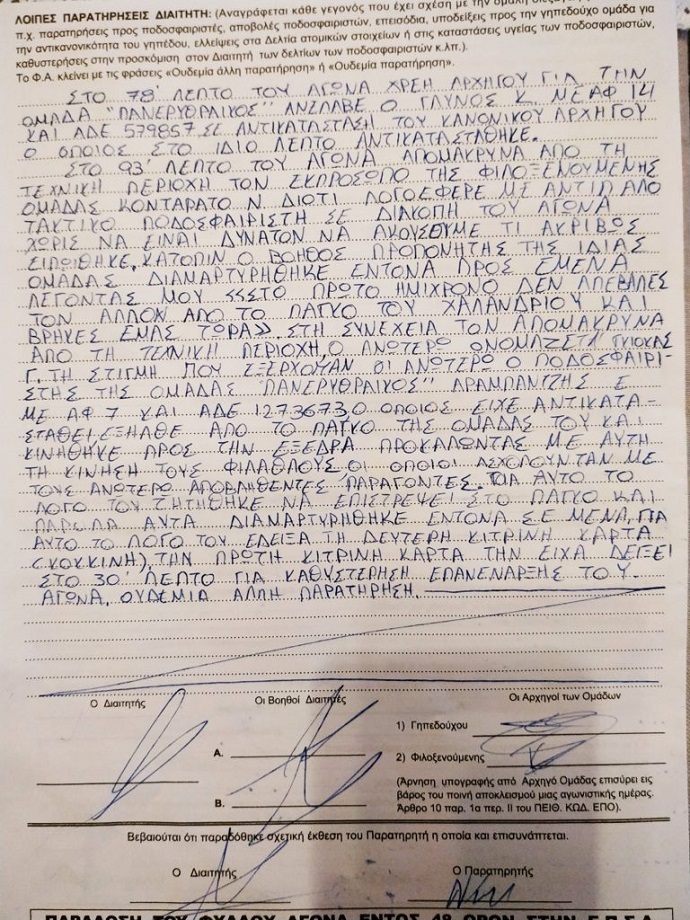 ΛΟΙΠΕΣ ΠΑΡΑΤΗΡΗΣΕΙΣ ΔΙΑΙΤΗΤΗ: (Αναγράφεται κάθε γεγονός που έχει σχέση με την ομαλή
π.χ. παρατηρήσεις προς ποδοσφαιριστές, αποβολές ποδοσφαιριστών, επεισόδια, υποδείξεις προς την γηπεδούχο ομάδα για
την αντικανονικότητα του γηπέδου, ελλείψεις στα Δελτία ατομικών στοιχείων ή στις καταστάσεις υγείας των ποδοσφαιριστών,
καθυστερήσεις στην προσκόμιση στον Διαιτητή των δελτίων των ποδοσφαιριστών κ.λπ.).
Το Φ.Α. κλείνει με τις φράσεις «Ουδεμία άλλη παρατήρηση» ή «Ουδεμία παρατήρηση».
ΣΤΟ 78' ΛΕΠΤΟ ΤΟΥ ΑΓΩΝΑ ΧΡΕΗ ΑΡΧΗΓΟΥ ΓΙΑ ΤΗΝ
ΟΜΑΔΑ "ΠΑΝΕΡΥΘΡΑΙΚΟΣ" ΑΝΕΛΑΒΕ Ο ΓΛΥΝΟΣ Κ. ΜΕ ΑΦ 14
ΚΑΙ ΑΔΕ 579857 ΣΕ ΑΝΤΙΚΑΤΑΣΤΑΣΗ ΤΟΥ ΚΑΝΟΝΙΚΟΥ ΑΡΧΗΓΟΥ
Ο ΟΠΟΙΟΣ ΣΤΟ ΙΔΙΟ ΛΕΠΤΟ ΑΝΤΙΚΑΤΑΣΤΑΘΗΚΕ.
ΣΤΟ 93' ΛΕΠΤΟ ΤΟΥ ΑΓΩΝΑ ΑΠΟΜΑΚΡΥΝΑ ΑΠΟ ΤΗ
ΤΕΧΝΙΚΗ ΠΕΡΙΟΧΗ ΤΟΝ ΕΚΠΡΟΣΩΠΟ ΤΗΣ ΦΙΛΟΞΕΝΟΥΜΕΝΗΣ
ΟΜΑΔΑΣ ΚΟΝΤΑΡΑΤΟ Ν. ΔΙΟΤΙ ΛΟΓΟΕΦΕΡΕ ΜΕ ΑΝΤΙΠΑΛΟ
ΤΑΚΤΙΚΟ ΠΟΔΟΣΦΑΙΡΙΣΤΗ ΣΕ ΔΙΑΚΟΠΗ ΤΟΥ ΑΓΩΝΑ
ΧΩΡΙΣ ΝΑ ΕΙΝΑΙ ΔΥΝΑΤΟΝ ΝΑ ΑΚΟΥΣΟΥΜΕ ΤΙ ΑΚΡΙΒΩΣ
ΕΙΠΩΘΗΚΕ. ΚΑΤΟΠΙΝ Ο ΒΟΗΘΟΣ ΠΡΟΠΟΝΗΤΗΣ ΤΗΣ ΙΔΙΑΣ
ΟΜΑΔΑΣ ΔΙΑΜΑΡΤΥΡΗΘΗΚΕ ΕΝΤΟΝΑ ΠΡΟΣ ΕΜΕΝΑ
ΛΕΓΟΝΤΑΣ ΜΟΥ <<ΣΤΟ ΠΡΩΤΟ ΗΜΙΧΡΟΝΟ ΔΕΝ ΑΠΕΒΑΛΕΣ
ΤΟΝ ΑΛΛΟΝ ΑΠΟ ΤΟ ΠΑΓΚΟ ΤΟΥ ΧΑΛΑΝΔΡΙΟΥ ΚΑΙ
ΒΡΗΚΕΣ ΕΜΑΣ ΤΩΡΑ>>. ΣΤΗ ΣΥΝΕΧΕΙΑ ΤΟΝ ΑΠΟΜΑΚΡΥΝΑ
ΑΠΟ ΤΗ ΤΕΧΝΙΚΗ ΠΕΡΙΟΧΗ, Ο ΑΝΩΤΕΡΩ ΟΝΟΜΑΖΕΤΑΙ ΓΚΙΟΚΑΣ
Γ. ΤΗ ΣΤΙΓΜΗ ΠΟΥ ΕΞΕΡΧΟΥΑΝ ΟΙ ΑΝΩΤΕΡΟ Ο ΠΟΔΟΣΦΑΙΡΙ-
ΣΤΗΣ ΤΗΣ ΟΜΑΔΑΣ "ΠΑΝΕΡΥΘΡΑΙΚΟΣ" ΑΡΑΜΠΑΝΤΖΗΣ Ε
ΜΕ ΑΦ 7 ΚΑΙ ΑΔΕ 1273673, Ο ΟΠΟΙΟΣ ΕΙΧΕ ΑΝΤΙΚΑΤΑ-
ΣΤΑΘΕΙ, ΕΞΗΛΘΕ ΑΠΟ ΤΟ ΠΑΓΚΟ ΤΗΣ ΟΜΑΔΑΣ ΤΟΥ ΚΑΙ
ΚΙΝΗΘΗΚΕ ΠΡΟΣ ΤΗΝ ΕΞΕΔΡΑ ΠΡΟΚΑΛΩΝΤΑΣ ΜΕ ΑΥΤΗ
ΤΗ ΚΙΝΗΣΗ ΤΟΥΣ ΦΙΛΑΘΛΟΥΣ, ΟΙ ΟΠΟΙΟΙ ΑΣΧΟΛΟΥΝΤΑΝ ΜΕ
ΤΟΥΣ ΑΝΩΤΕΡΟ ΑΠΟΒΛΗΘΕΝΤΕΣ ΠΑΡΑΓΟΝΤΕΣ. ΓΙΑ ΑΥΤΟ ΤΟ
ΛΟΓΟ ΤΟΥ ΖΗΤΗΘΗΚΕ ΝΑ ΕΠΙΣΤΡΕΨΕΙ ΣΤΟ ΠΑΓΚΟ ΚΑΙ
ΠΑΡΟΛΑ ΑΥΤΑ ΔΙΑΜΑΡΤΥΡΗΘΗΚΕ ΕΝΤΟΝΑ ΣΕ ΜΕΝΑ, ΓΙΑ
ΑΥΤΟ ΤΟ ΛΟΓΟ ΤΟΥ ΕΔΕΙΞΑ ΤΗ ΔΕΥΤΕΡΗ ΚΙΤΡΙΝΗ ΚΑΡΤΑ
(ΚΟΚΚΙΝΗ), ΤΗΝ ΠΡΩΤΗ ΚΙΤΡΙΝΗ ΚΑΡΤΑ ΤΗΝ ΕΙΧΑ ΔΕΙΞΕΙ
ΣΤΟ 30' ΛΕΠΤΟ ΓΙΑ ΚΑΘΥΣΤΕΡΗΣΗ ΕΠΑΝΕΝΑΡΞΗΣ ΤΟΥ
ΑΓΩΝΑ. ΟΥΔΕΜΙΑ ΑΛΛΗ ΠΑΡΑΤΗΡΗΣΗ.
Ο Διαιτητής Οι Βοηθοί Διαιτητές Οι Αρχηγοί των Ομάδων
1) Γηπεδούχου
Α. 2) Φιλοξενούμενης
(Άρνηση υπογραφής από Αρχηγό Ομάδας επισύρει εις
βάρος του ποινή αποκλεισμού μιας αγωνιστικής ημέρας.
Β. Άρθρο 10 παρ. 1α περ. II του ΠΕΙΘ. ΚΩΔ. ΕΠΟ).
Βεβαιούται ότι παραδόθηκε σχετική έκθεση του Παρατηρητή η οποία και επισυνάπτεται.
Ο Διαιτητής Ο Παρατηρητής
ΠΑΡΑΔΟΣΗ ΤΟΥ ΦΥΛΛΟΥ ΑΓΩΝΑ ΕΝΤΟΣ 48 ΩΡΩΝ ΣΤΗΝ Ε.Π.Σ.Α.